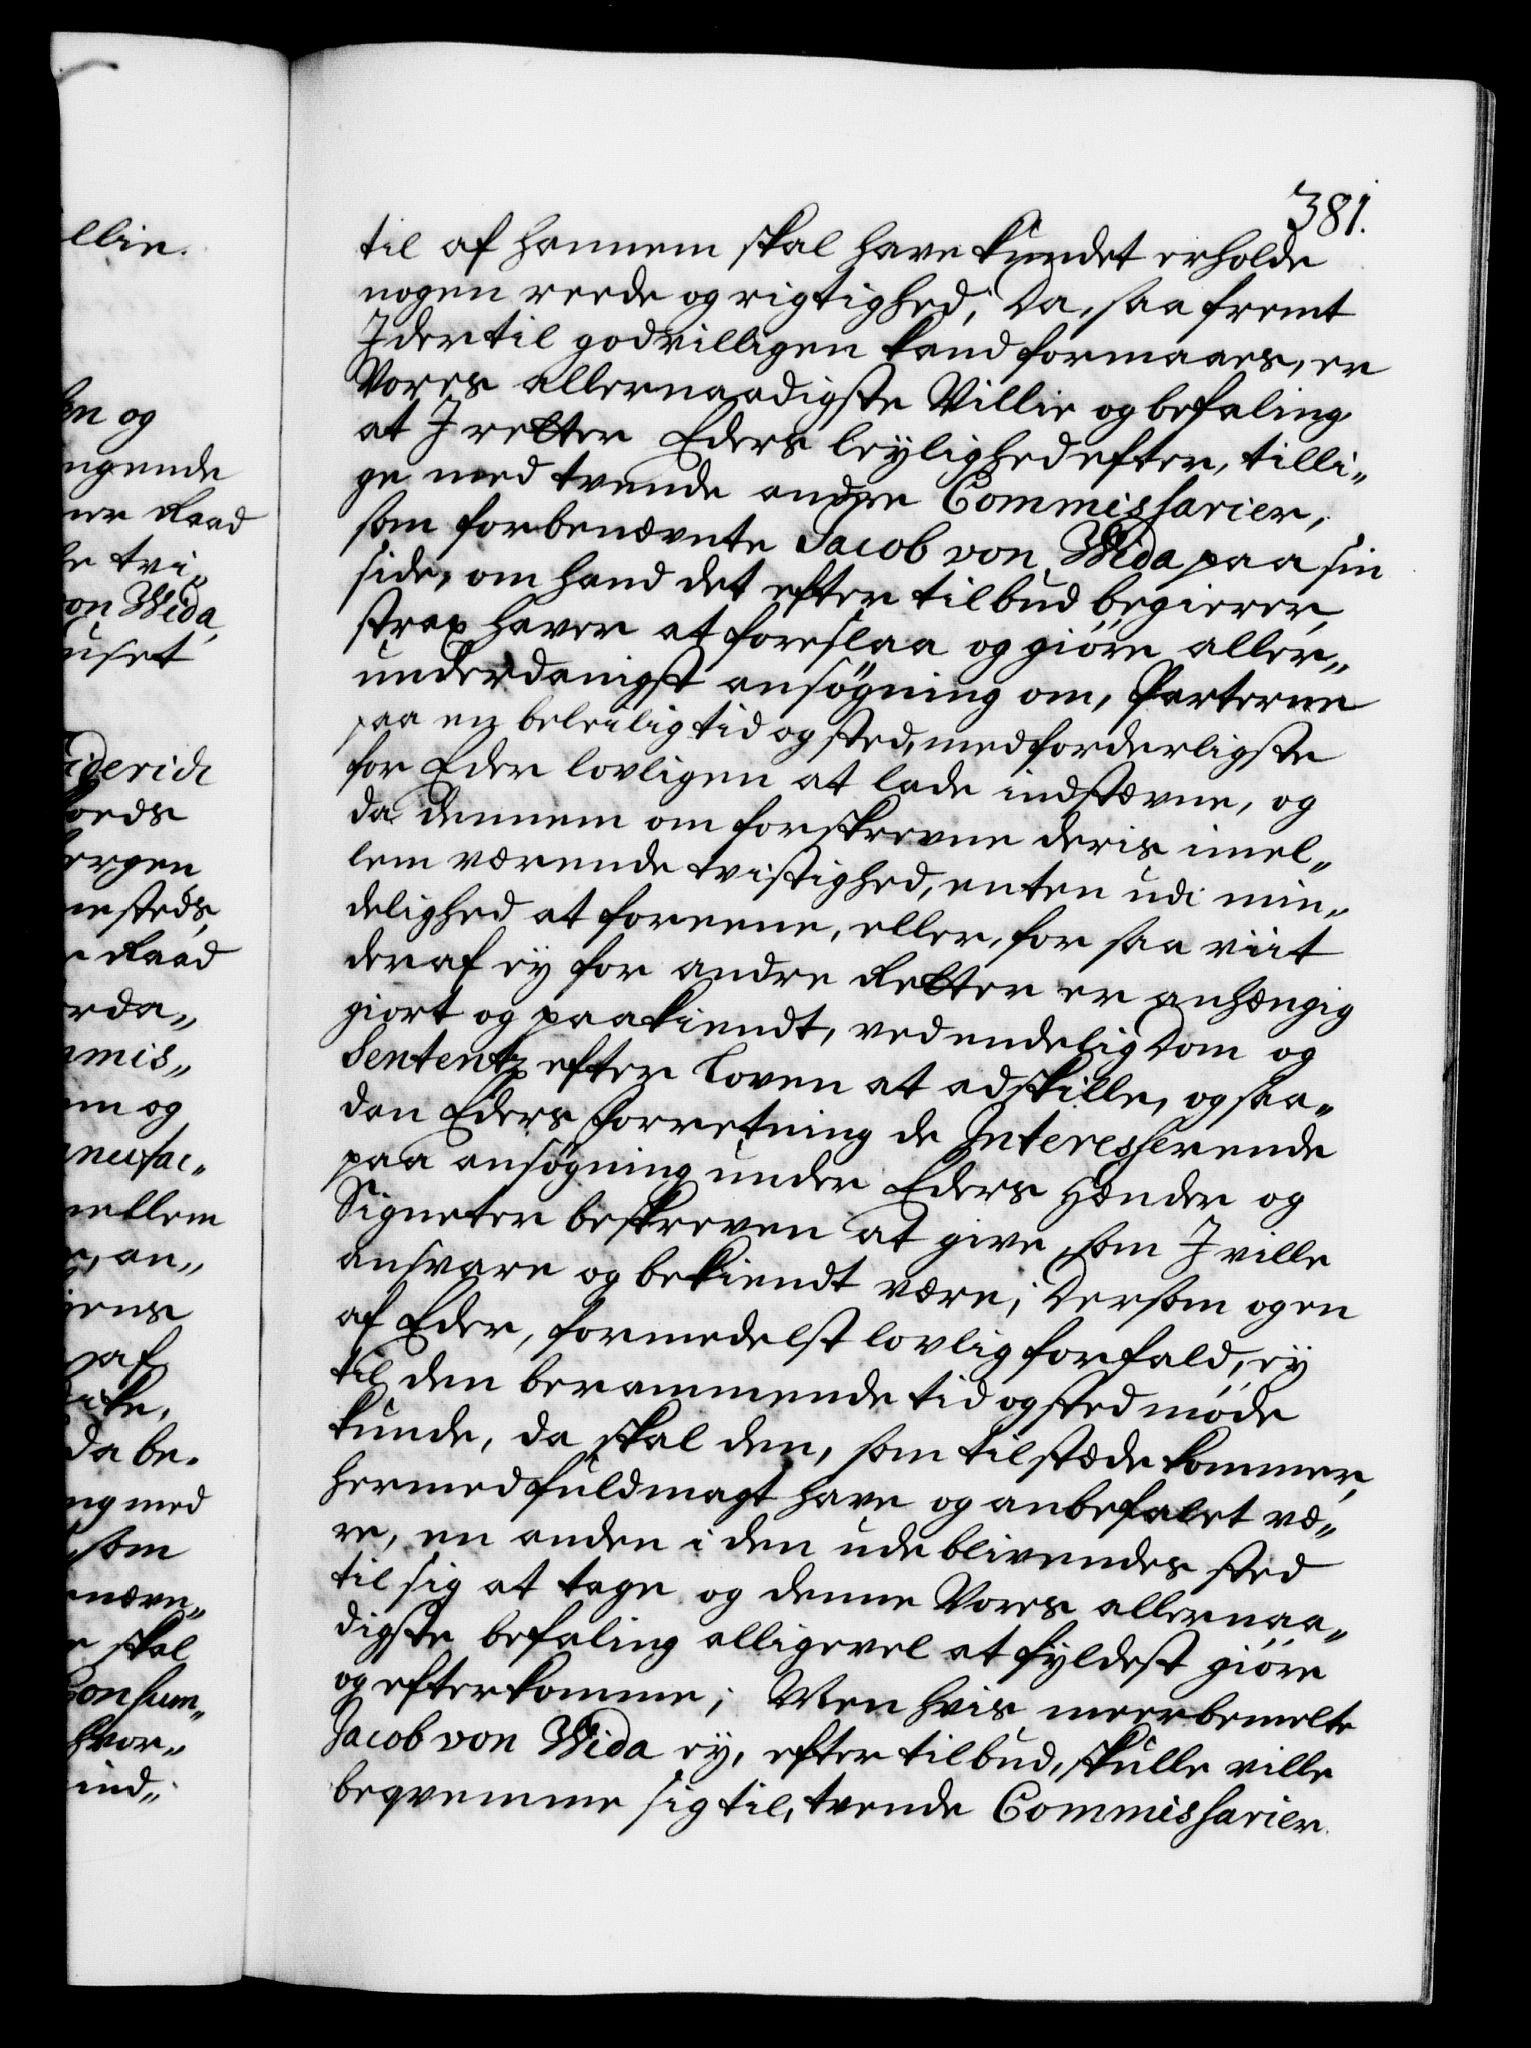 381.
til af hannem skal have kundet erholde
nogen reede og rigtighed; Da, saa fremt
I dertil godvilligen kand formaaes, er
Vores allernaadigste Villie og befaling,
at I retter Eders leylighed efter, tilli„
ge med tvende andre Commissarier,
som forbenævnte Jacob von Wida paa sin
side, om hand det efter tilbud begierer,
strax haver at foreslaa og giöre aller„
underdanigst ansögning om, Parterne
paa en beleilig tid og sted, med forderligste
for Eder lovligen at lade indstævne, og
da dennem om forskrevne deris imel„
lem værende tvistighed, enten udi min„
delighed at foreene, eller, for saa viit
deraf ey for andre Retter er anhængig
giort og paakiendt, ved endelig Dom og
Sententz efter Loven at adskille, og saa„
dan Eders forretning de Interesserende
paa ansögning under Eders Hænder og
Signeter beskreven at give, som I ville
ansvare og bekiendt være; Dersom og en
af Eder, formedelst lovlig forfald, ey
til den berammende tid og sted möde
kunde, da skal den, som tilstæde kommer,
hermed fuldmagt have og anbefalet væ„
re, en anden i den udeblivendes sted
til sig at tage og denne Vores allernaa„
digste befaling alligevel at fyldest giöre
og efterkomme; Men hvis meerbemelte
Jacob von Wida ey, efter tilbud, skulle ville
beqvemme sig til, tvende Commissarier
llie.
en og
ngende
er Raad
tvi„
on Wida,
uset
iderich
ords
ergen
e steds,
Raad
rda„
mis„
m og
nufac„
mellem
, an„
gens
af
da be„
ng med
som
nævn„
skal
Consum„
hvor„
ind„